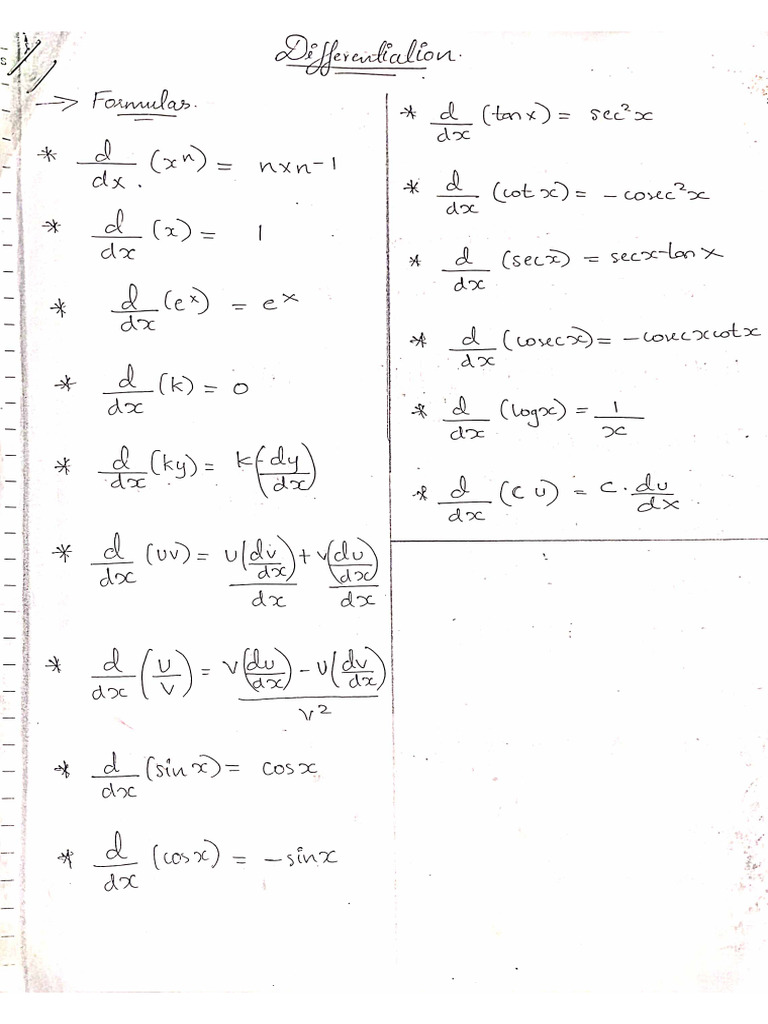 Differentiation.
→ Formulas.
* d/dx. (xⁿ) = nxn-1
* d/dx (x) = 1
* d/dx (eˣ) = eˣ
* d/dx (k) = 0
* d/dx (ky) = k(dy/dx)
* d/dx (uv) = u(dv/dx)/dx + v(du/dx)/dx
* d/dx (u/v) = v(du/dx) - u(dv/dx) / v²
* d/dx (sinx) = cosx
* d/dx (cosx) = -sinx
* d/dx (tanx) = sec²x
* d/dx (cotx) = -cosec²x
* d/dx (secx) = secx·tanx
* d/dx (cosecx) = -cosecxcotx
* d/dx (logx) = 1/x
* d/dx (CU) = C·du/dx